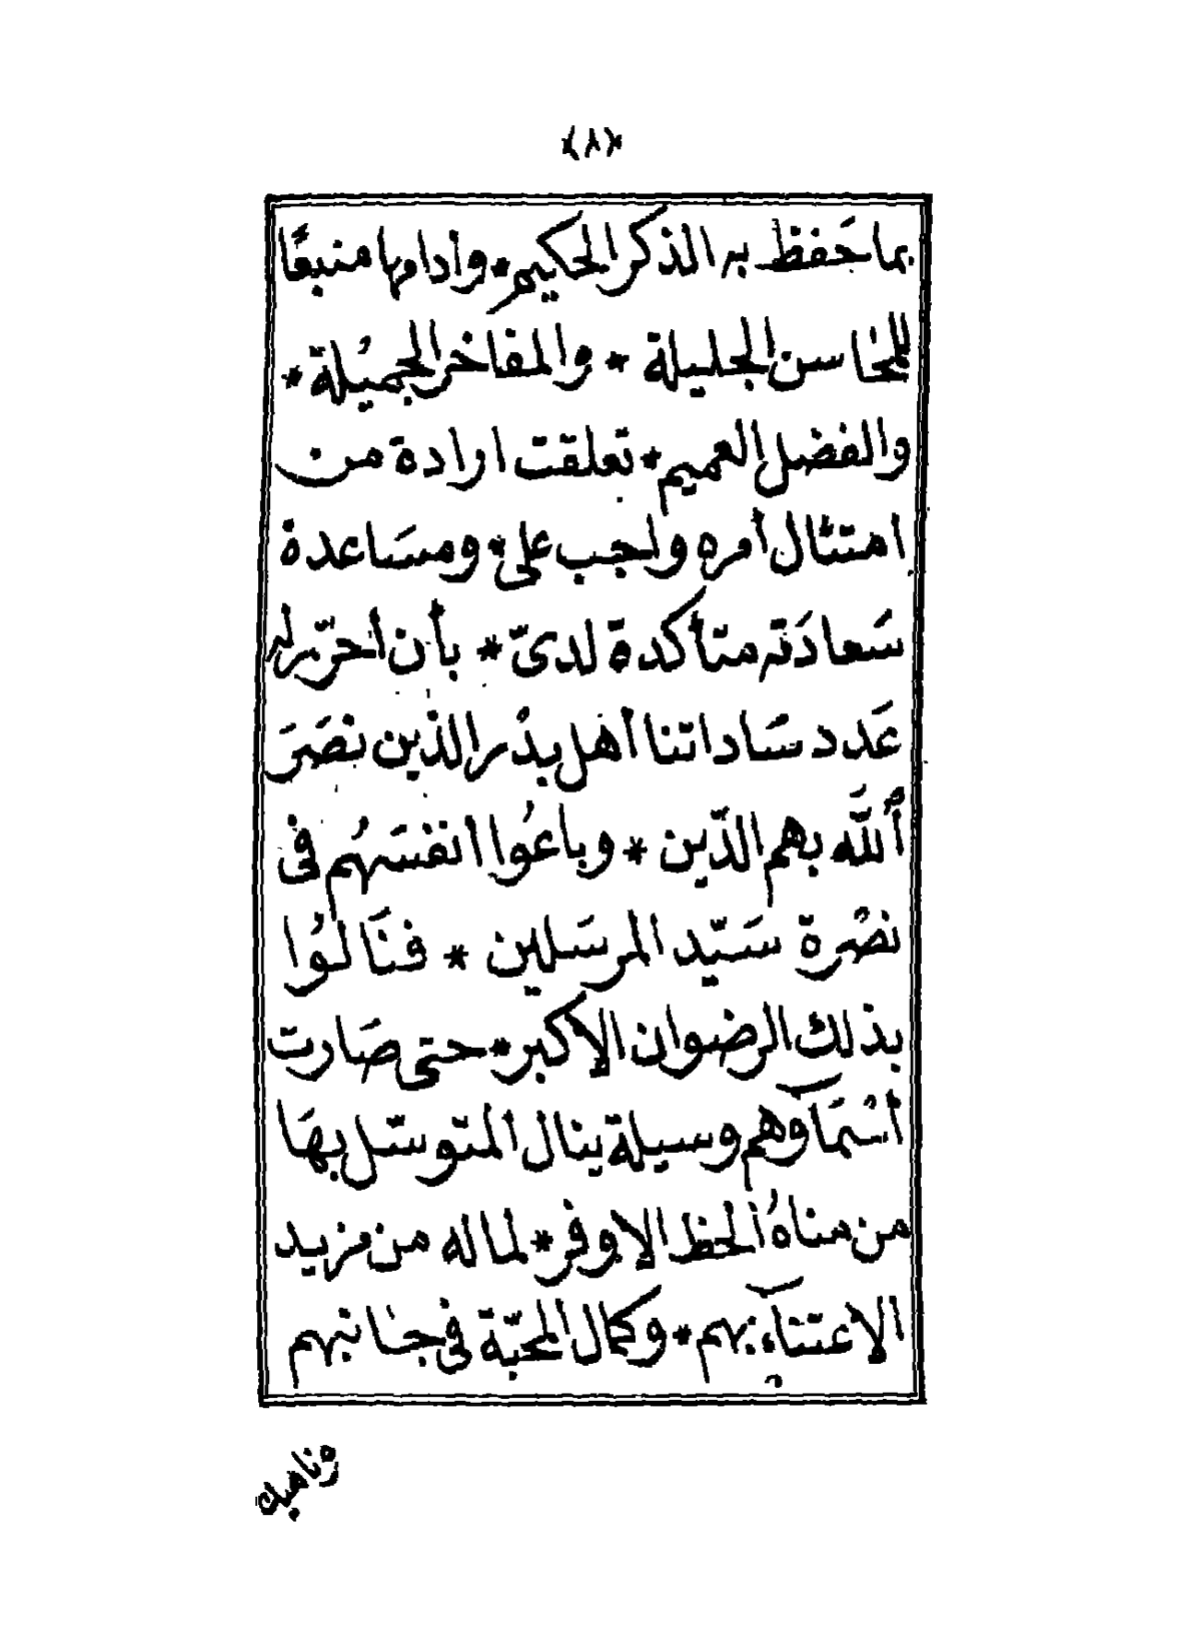 ﴿٨﴾
بما حَفظ به الذكر الحكيم * وأدامها منبعًا
للمحاسن الجليلة * والمفاخر الجميُلة *
والفضل العميم * تعلقت ارادة من
امتثال أمره واجب علىّ * ومسَاعدة
سَعادَته متأكدة لدىّ * بأن أحرّر له
عَدد سَاداتنا أهل بدْر الذّين نصَرَ
ٱللَّه بهم الدّين * وباعُوا أنفسَهُم فى
نصْرة سَيّد المرسَلين * فنَالُوا
بذلك الرضوان الاكبر * حتى صَارت
أسْمَآؤهم وسيلة ينال المتوسّل بهَا
من مناهُ ألحظ الاوفر * لما له من مزيد
الاعتنآء بهم * وكمال المحبّة فى جنابهم
وناهيك